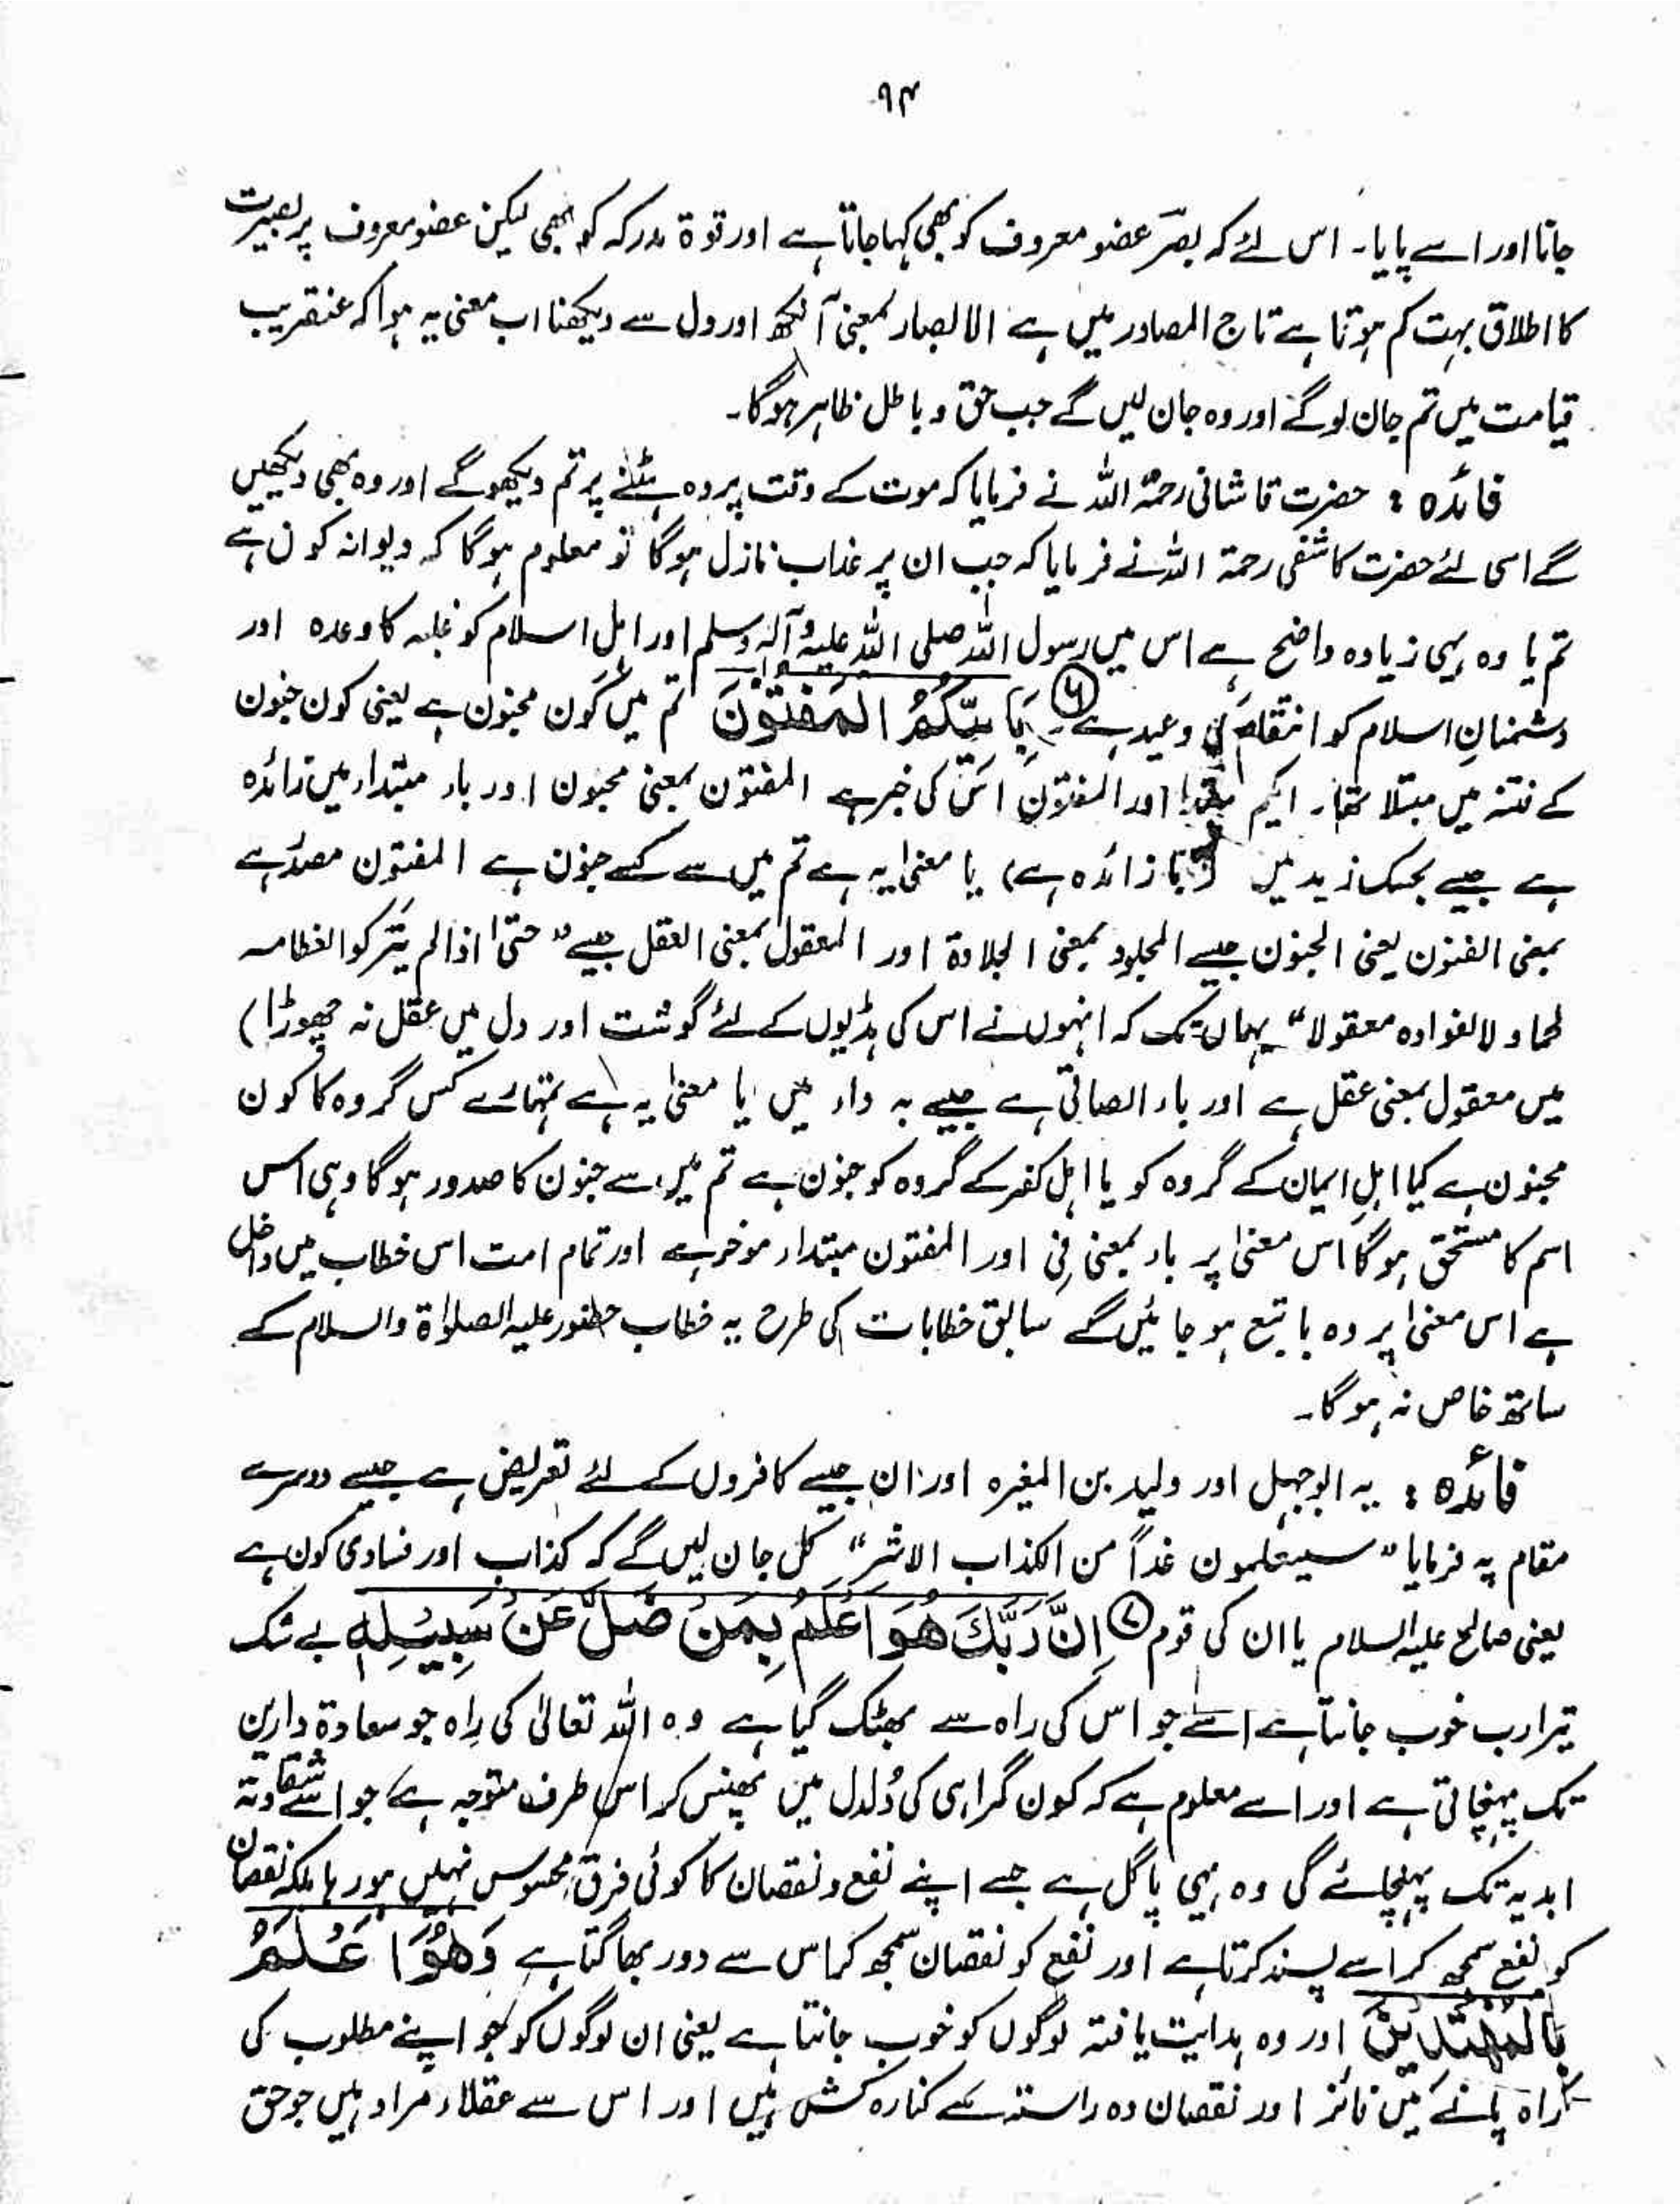 ۹۴
جانا اور اسے پایا۔ اس لئے کہ بصر عضو معروف کو بھی کہا جاتا ہے اور قوۃ مدرکہ کو بھی لیکن عضو معروف پر بصیرت
کا اطلاق بہت کم ہوتا ہے تاج المصادر میں ہے الابصار بمعنی آنکھ اور دل سے دیکھنا اب معنی یہ ہوا کہ عنقریب
قیامت میں تم جان لو گے اور وہ جان لیں گے جب حق و باطل ظاہر ہوگا۔
فائدہ : حضرت قاشانی رحمۃ اللہ نے فرمایا کہ موت کے وقت پردہ ہٹنے پر تم دیکھو گے اور وہ بھی دیکھیں
گے اسی لئے حضرت کاشفی رحمۃ اللہ نے فرمایا کہ جب ان پر عذاب نازل ہوگا تو معلوم ہوگا کہ دیوانہ کون ہے
تم یا وہ یہی زیادہ واضح ہے اس میں رسول اللہ صلی اللہ علیہ وآلہ وسلم اور اہل اسلام کو غلبہ کا وعدہ اور
دشمنانِ اسلام کو انتقام کی وعید ہے ۔ ⑥ بِاَیِّکُمُ الْمَفْتُوْنَ تم میں کون مجنون ہے یعنی کون جنون
کے فتنہ میں مبتلا تھا۔ ایکم مبتدا اور المفتون اس کی خبر ہے المفتون بمعنی مجنون اور باء مبتداء میں زائدہ
ہے جیسے بحسبک زید میں (با زائدہ ہے) یا معنیٰ یہ ہے تم میں سے کسے جنون ہے المفتون مصدر ہے
بمعنی الفتون یعنی الجنون جیسے المجلود بمعنی الجلادۃ اور المعقول بمعنی العقل جیسے ”حتیٰ اذا لم یترکوا لعظامہ
لحما و لا لفوادہ معقولا“ یہاں تک کہ انہوں نے اس کی ہڈیوں کے لئے گوشت اور دل میں عقل نہ چھوڑا)
میں معقول بمعنی عقل ہے اور باء الصاقی ہے جیسے بہ داء میں یا معنیٰ یہ ہے تمہارے کس گروہ کا کون
مجنون ہے کیا اہلِ ایمان کے گروہ کو یا اہل کفر کے گروہ کو جنون ہے تم میں سے جنون کا صدور ہوگا وہی اس
اسم کا مستحق ہوگا اس معنیٰ پر باء بمعنی فِی اور المفتون مبتداء موخر ہے اور تمام امت اس خطاب میں داخل
ہے اس معنیٰ پر وہ با تبع ہو جائیں گے سابق خطابات کی طرح یہ خطاب حضور علیہ الصلوٰۃ والسلام کے
ساتھ خاص نہ ہوگا۔
فائدہ : یہ ابوجہل اور ولید بن المغیرہ اور ان جیسے کافروں کے لئے تعریض ہے جیسے دوسرے
مقام پہ فرمایا ”سیعلمون غداً من الکذاب الاشر“ کل جان لیں گے کہ کذاب اور فسادی کون ہے
یعنی صالح علیہ السلام یا ان کی قوم ⑦ اِنَّ رَبَّکَ ھُوَ اَعْلَمُ بِمَنْ ضَلَّ عَنْ سَبِیْلِہٖ بے شک
تیرا رب خوب جانتا ہے اسے جو اس کی راہ سے بھٹک گیا ہے وہ اللہ تعالیٰ کی راہ جو سعادۃ دارین
تک پہنچاتی ہے اور اسے معلوم ہے کہ کون گمراہی کی دُلدل میں پھنس کر اس طرف متوجہ ہے جو اسے شقاوتہ
ابدیہ تک پہنچائے گی وہ یہی پاگل ہے جسے اپنے نفع و نقصان کا کوئی فرق محسوس نہیں ہو رہا بلکہ نقصان
کو نفع سمجھ کر اسے پسند کرتا ہے اور نفع کو نقصان سمجھ کر اس سے دور بھاگتا ہے وَھُوَ اَعْلَمُ
بِالْمُھْتَدِیْنَ اور وہ ہدایت یافتہ لوگوں کو خوب جانتا ہے یعنی ان لوگوں کو جو اپنے مطلوب کی
راہ پانے میں فائز اور نقصان دہ راستہ سے کنارہ کش ہیں اور اس سے عقلاء مراد ہیں جو حق